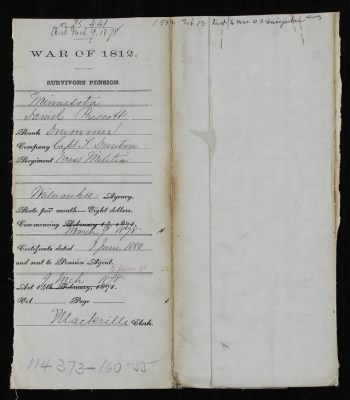 25,441
Act Mch 9, 1878
WAR OF 1812.
SURVIVORS PENSION.
Minnesota
Daniel Prescott
Rank Drummer
Company Capt T
Regiment Mass Militia
Milwaukee Agency.
Rate per month—Eight dollars.
Commencing February 14, 1871.
March 9 1878
Certificate dated 9 June 1880
and sent to Pension Agent,
9 June 80
Act 14th February, 1871.
9 Mch 1878
Vol. Page
Clerk.
114-373-160-55